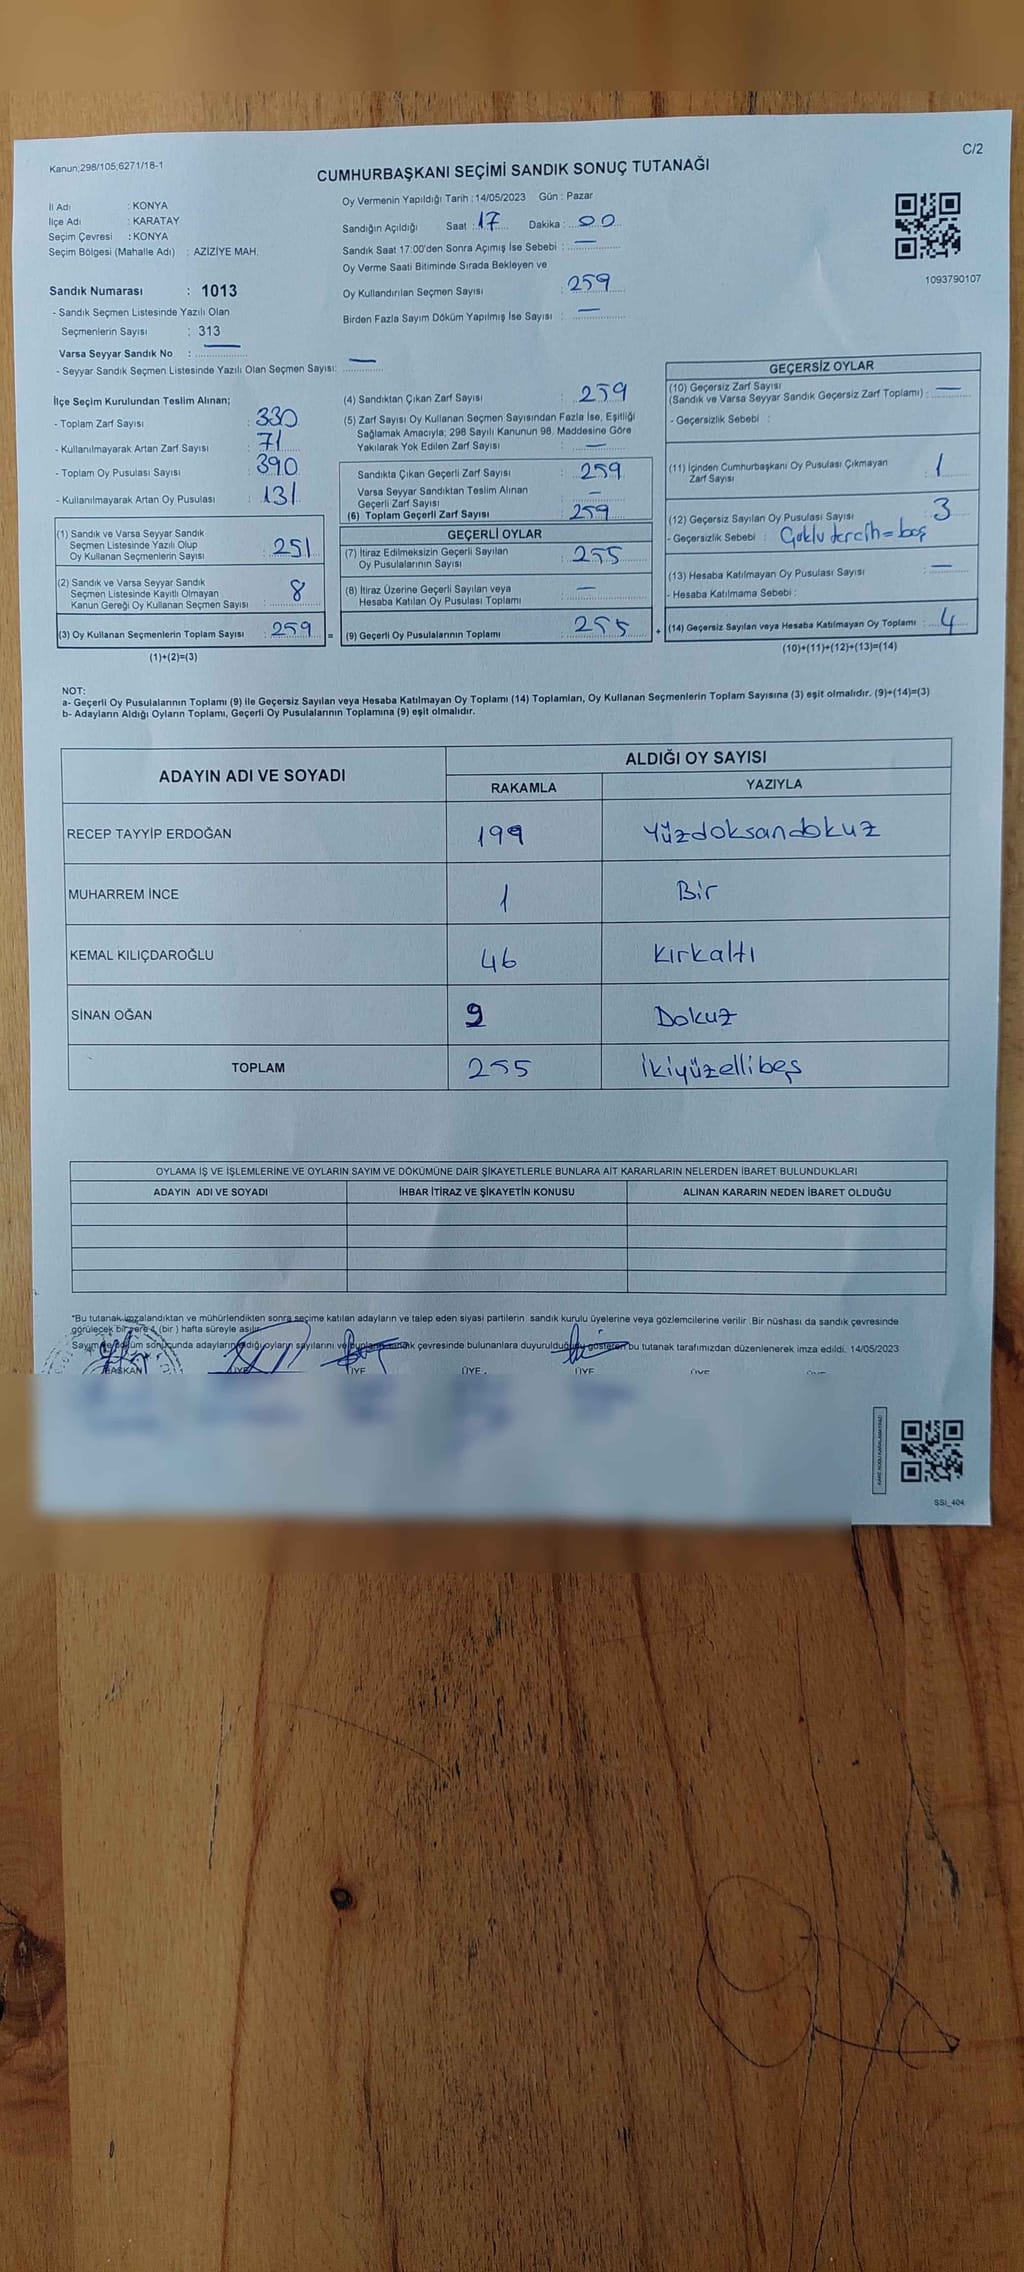 Kanun;298/105;6271/18-1
C/2
CUMHURBAŞKANI SEÇİMİ SANDIK SONUÇ TUTANAĞI
İl Adı : KONYA
İlçe Adı : KARATAY
Seçim Çevresi : KONYA
Seçim Bölgesi (Mahalle Adı) : AZİZİYE MAH.
Oy Vermenin Yapıldığı Tarih : 14/05/2023 Gün : Pazar
Sandığın Açıldığı Saat : 17 Dakika : 00
Sandık Saat 17:00'den Sonra Açımış İse Sebebi : —
Oy Verme Saati Bitiminde Sırada Bekleyen ve
Oy Kullandırılan Seçmen Sayısı : 259
Birden Fazla Sayım Döküm Yapılmış İse Sayısı : —
1093790107
Sandık Numarası : 1013
- Sandık Seçmen Listesinde Yazılı Olan
Seçmenlerin Sayısı : 313
Varsa Seyyar Sandık No : —
- Seyyar Sandık Seçmen Listesinde Yazılı Olan Seçmen Sayısı: —
İlçe Seçim Kurulundan Teslim Alınan;
- Toplam Zarf Sayısı : 330
- Kullanılmayarak Artan Zarf Sayısı : 71
- Toplam Oy Pusulası Sayısı : 390
- Kullanılmayarak Artan Oy Pusulası : 131
(1) Sandık ve Varsa Seyyar Sandık
Seçmen Listesinde Yazılı Olup
Oy Kullanan Seçmenlerin Sayısı : 251
(2) Sandık ve Varsa Seyyar Sandık
Seçmen Listesinde Kayıtlı Olmayan
Kanun Gereği Oy Kullanan Seçmen Sayısı : 8
(3) Oy Kullanan Seçmenlerin Toplam Sayısı : 259 =
(1)+(2)=(3)
(4) Sandıktan Çıkan Zarf Sayısı : 259
(5) Zarf Sayısı Oy Kullanan Seçmen Sayısından Fazla İse, Eşitliği
Sağlamak Amacıyla; 298 Sayılı Kanunun 98. Maddesine Göre
Yakılarak Yok Edilen Zarf Sayısı : —
Sandıkta Çıkan Geçerli Zarf Sayısı : 259
Varsa Seyyar Sandıktan Teslim Alınan
Geçerli Zarf Sayısı : —
(6) Toplam Geçerli Zarf Sayısı : 259
GEÇERLİ OYLAR
(7) İtiraz Edilmeksizin Geçerli Sayılan
Oy Pusulalarının Sayısı : 255
(8) İtiraz Üzerine Geçerli Sayılan veya
Hesaba Katılan Oy Pusulası Toplamı : —
(9) Geçerli Oy Pusulalarının Toplamı : 255 +
GEÇERSİZ OYLAR
(10) Geçersiz Zarf Sayısı
(Sandık ve Varsa Seyyar Sandık Geçersiz Zarf Toplamı) : —
- Geçersizlik Sebebi :
(11) İçinden Cumhurbaşkanı Oy Pusulası Çıkmayan
Zarf Sayısı : 1
(12) Geçersiz Sayılan Oy Pusulası Sayısı : 3
- Geçersizlik Sebebi : Çoklu tercih = boş
(13) Hesaba Katılmayan Oy Pusulası Sayısı : —
- Hesaba Katılmama Sebebi :
(14) Geçersiz Sayılan veya Hesaba Katılmayan Oy Toplamı : 4
(10)+(11)+(12)+(13)=(14)
NOT:
a- Geçerli Oy Pusulalarının Toplamı (9) ile Geçersiz Sayılan veya Hesaba Katılmayan Oy Toplamı (14) Toplamları, Oy Kullanan Seçmenlerin Toplam Sayısına (3) eşit olmalıdır. (9)+(14)=(3)
b- Adayların Aldığı Oyların Toplamı, Geçerli Oy Pusulalarının Toplamına (9) eşit olmalıdır.
ADAYIN ADI VE SOYADI
ALDIĞI OY SAYISI
RAKAMLA YAZIYLA
RECEP TAYYİP ERDOĞAN 199 Yüzdoksandokuz
MUHARREM İNCE 1 Bir
KEMAL KILIÇDAROĞLU 46 Kırkaltı
SİNAN OĞAN 9 Dokuz
TOPLAM 255 İkiyüzellibeş
OYLAMA İŞ VE İŞLEMLERİNE VE OYLARIN SAYIM VE DÖKÜMÜNE DAİR ŞİKAYETLERLE BUNLARA AİT KARARLARIN NELERDEN İBARET BULUNDUKLARI
ADAYIN ADI VE SOYADI İHBAR İTİRAZ VE ŞİKAYETİN KONUSU ALINAN KARARIN NEDEN İBARET OLDUĞU
*Bu tutanak imzalandıktan ve mühürlendikten sonra seçime katılan adayların ve talep eden siyasi partilerin sandık kurulu üyelerine veya gözlemcilerine verilir. Bir nüshası da sandık çevresinde
görülecek bir yere 1 (bir) hafta süreyle asılır.
Sayım ve döküm sonucunda adayların aldığı oyların sayılarını ve bunların sandık çevresinde bulunanlara duyurulduğunu gösteren bu tutanak tarafımızdan düzenlenerek imza edildi. 14/05/2023
BAŞKAN ÜYE ÜYE ÜYE ÜYE ÜYE
SSİ_404